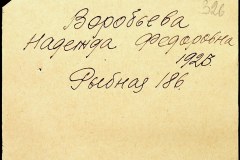 326
Воробьева
Надежда Федоровна
1923.
Рыбная 186